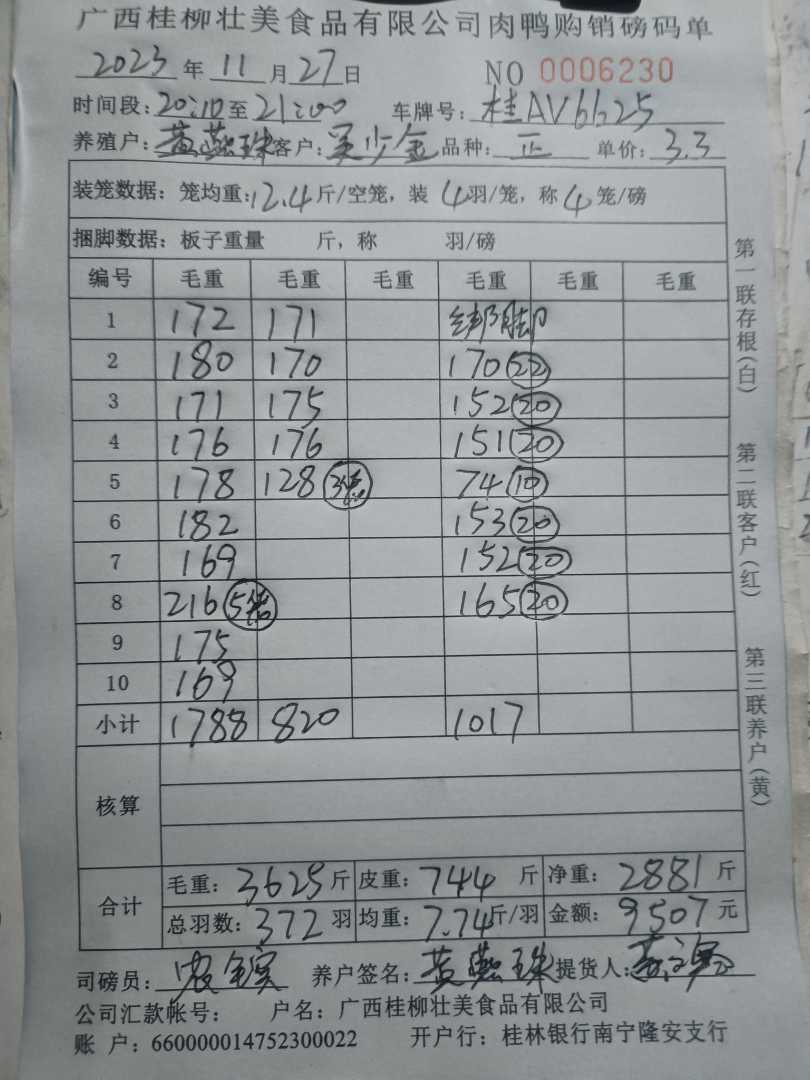 广西桂柳壮美食品有限公司肉鸭购销磅码单
2023 年 11 月 27 日 NO 0006230
时间段: 20:10 至 21:00 车牌号: 桂AV6625
养殖户: 黄燕珠 客户: 吴少金 品种: 正 单价: 3.3
装笼数据: 笼均重: 12.4 斤/空笼, 装 4 羽/笼, 称 4 笼/磅
捆脚数据: 板子重量 斤, 称 羽/磅
编号 毛重 毛重 毛重 毛重 毛重 毛重
1 172 171 绑脚
2 180 170 170 22
3 171 175 152 20
4 176 176 151 20
5 178 128 3笼 74 10
6 182 153 20
7 169 152 20
8 216 5笼 165 20
9 175
10 169
小计 1788 820 1017
核算
合计
毛重: 3625 斤 皮重: 744 斤 净重: 2881 斤
总羽数: 372 羽 均重: 7.74 斤/羽 金额: 9507 元
司磅员: 养户签名: 黄燕珠 提货人:
公司汇款帐号: 户名: 广西桂柳壮美食品有限公司
账 户: 660000014752300022 开户行: 桂林银行南宁隆安支行
第一联存根(白) 第二联客户(红) 第三联养户(黄)